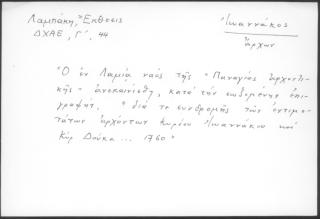 Λαμπάκη, Ἔκθεσις
ΔΧΑΕ, Γ΄, 44
Ἰωαννάκος
ἄρχων
"Ὁ ἐν Λαμίᾳ ναὸς τῆς "Παναγίας ἀρχοντι-
κῆς" ἀνεκαινίσθη, κατά τήν σωζομένην ἐπι-
γραφήν, "διά τε συνδρομῆς τῶν ἐντιμο-
τάτων ἀρχόντων Κυρίου Ἰωαννάκου καί
Κύρ Δούκα... 1760"